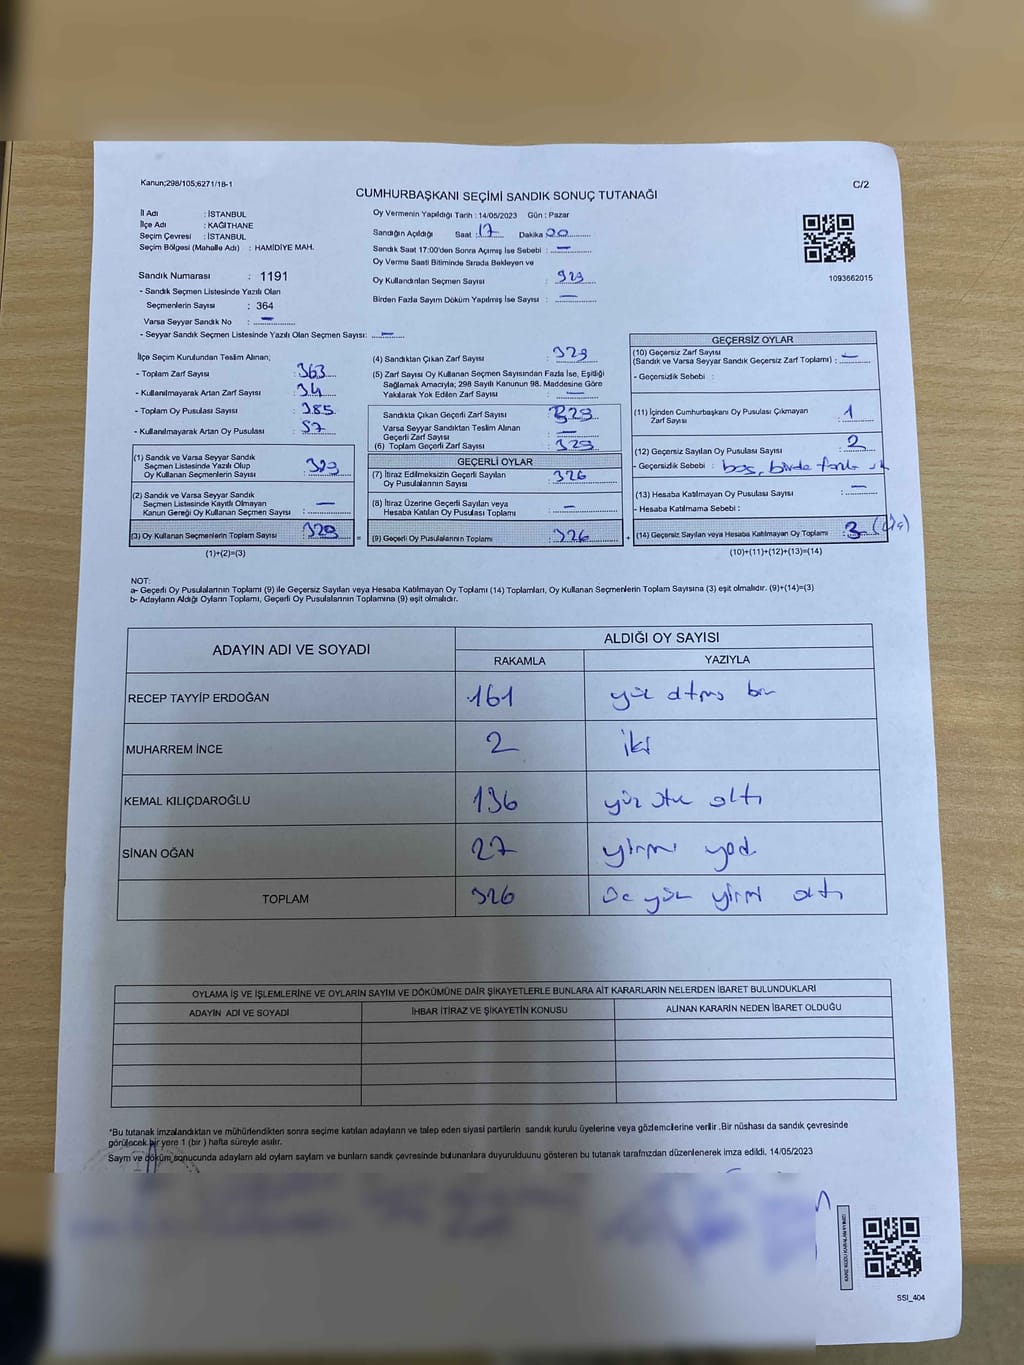 Kanun;298/105;6271/18-1
C/2
CUMHURBAŞKANI SEÇİMİ SANDIK SONUÇ TUTANAĞI
İl Adı : İSTANBUL
İlçe Adı : KAĞITHANE
Seçim Çevresi : İSTANBUL
Seçim Bölgesi (Mahalle Adı) : HAMİDİYE MAH.
Sandık Numarası : 1191
- Sandık Seçmen Listesinde Yazılı Olan
Seçmenlerin Sayısı : 364
Varsa Seyyar Sandık No : —
- Seyyar Sandık Seçmen Listesinde Yazılı Olan Seçmen Sayısı: —
Oy Vermenin Yapıldığı Tarih : 14/05/2023 Gün : Pazar
Sandığın Açıldığı Saat : 17 Dakika 00
Sandık Saat 17:00'den Sonra Açılmış İse Sebebi : —
Oy Verme Saati Bitiminde Sırada Bekleyen ve
Oy Kullandırılan Seçmen Sayısı : 329
Birden Fazla Sayım Döküm Yapılmış İse Sayısı : —
1093662015
İlçe Seçim Kurulundan Teslim Alınan;
- Toplam Zarf Sayısı : 363
- Kullanılmayarak Artan Zarf Sayısı : 34
- Toplam Oy Pusulası Sayısı : 385
- Kullanılmayarak Artan Oy Pusulası : 57
(1) Sandık ve Varsa Seyyar Sandık
Seçmen Listesinde Yazılı Olup
Oy Kullanan Seçmenlerin Sayısı : 329
(2) Sandık ve Varsa Seyyar Sandık
Seçmen Listesinde Kayıtlı Olmayan
Kanun Gereği Oy Kullanan Seçmen Sayısı : —
(3) Oy Kullanan Seçmenlerin Toplam Sayısı : 329
(1)+(2)=(3)
(4) Sandıktan Çıkan Zarf Sayısı : 329
(5) Zarf Sayısı Oy Kullanan Seçmen Sayısından Fazla İse, Eşitliği
Sağlamak Amacıyla; 298 Sayılı Kanunun 98. Maddesine Göre
Yakılarak Yok Edilen Zarf Sayısı : —
Sandıkta Çıkan Geçerli Zarf Sayısı : 329
Varsa Seyyar Sandıktan Teslim Alınan
Geçerli Zarf Sayısı : —
(6) Toplam Geçerli Zarf Sayısı : 329
GEÇERLİ OYLAR
(7) İtiraz Edilmeksizin Geçerli Sayılan
Oy Pusulalarının Sayısı : 326
(8) İtiraz Üzerine Geçerli Sayılan veya
Hesaba Katılan Oy Pusulası Toplamı : —
= (9) Geçerli Oy Pusulalarının Toplamı : 326
GEÇERSİZ OYLAR
(10) Geçersiz Zarf Sayısı
(Sandık ve Varsa Seyyar Sandık Geçersiz Zarf Toplamı) : —
- Geçersizlik Sebebi :
(11) İçinden Cumhurbaşkanı Oy Pusulası Çıkmayan
Zarf Sayısı : 1
(12) Geçersiz Sayılan Oy Pusulası Sayısı : 2
- Geçersizlik Sebebi : boş, birden fazla
(13) Hesaba Katılmayan Oy Pusulası Sayısı : —
- Hesaba Katılmama Sebebi :
+ (14) Geçersiz Sayılan veya Hesaba Katılmayan Oy Toplamı : 3 (üç)
(10)+(11)+(12)+(13)=(14)
NOT:
a- Geçerli Oy Pusulalarının Toplamı (9) ile Geçersiz Sayılan veya Hesaba Katılmayan Oy Toplamı (14) Toplamları, Oy Kullanan Seçmenlerin Toplam Sayısına (3) eşit olmalıdır. (9)+(14)=(3)
b- Adayların Aldığı Oyların Toplamı, Geçerli Oy Pusulalarının Toplamına (9) eşit olmalıdır.
ADAYIN ADI VE SOYADI
ALDIĞI OY SAYISI
RAKAMLA YAZIYLA
RECEP TAYYİP ERDOĞAN 161 yüz atmış bir
MUHARREM İNCE 2 iki
KEMAL KILIÇDAROĞLU 136 yüz otuz altı
SİNAN OĞAN 27 yirmi yedi
TOPLAM 326 Üç yüz yirmi altı
OYLAMA İŞ VE İŞLEMLERİNE VE OYLARIN SAYIM VE DÖKÜMÜNE DAİR ŞİKAYETLERLE BUNLARA AİT KARARLARIN NELERDEN İBARET BULUNDUKLARI
ADAYIN ADI VE SOYADI İHBAR İTİRAZ VE ŞİKAYETİN KONUSU ALINAN KARARIN NEDEN İBARET OLDUĞU
*Bu tutanak imzalandıktan ve mühürlendikten sonra seçime katılan adayların ve talep eden siyasi partilerin sandık kurulu üyelerine veya gözlemcilerine verilir .Bir nüshası da sandık çevresinde
görülecek bir yere 1 (bir ) hafta süreyle asılır.
Sayım ve döküm sonucunda adayların ald oyların sayların ve bunların sandk çevresinde bulunanlara duyurulduunu gösteren bu tutanak tarafmzdan düzenlenerek imza edildi. 14/05/2023
SSI_404